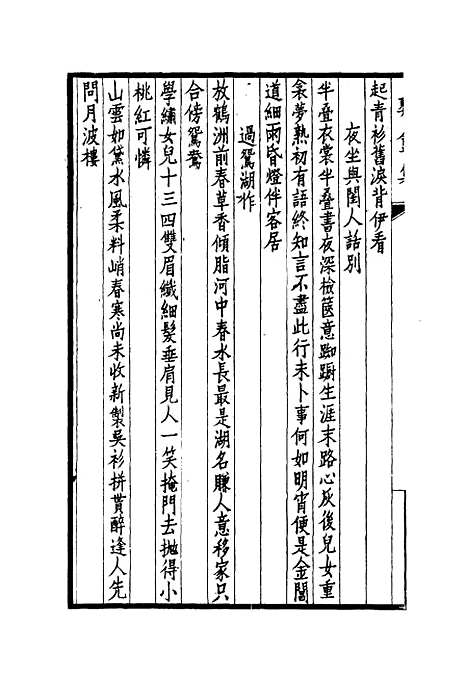 起青衫舊淚背伊看
夜坐與閨人話別
半叠衣裳半叠書夜深檢篋意踟蹰生涯末路心灰後兒女重
衾夢熟初有語終知言不盡此行未卜事何如明宵便是金閶
道細雨昏燈伴客居
過鴛湖作
放鶴洲前春草香傾脂河中春水長最是湖名賺人意移家只
合傍鴛鴦
學繡女兒十三四雙眉纖細髮垂肩見人一笑掩門去抛得小
桃紅可憐
山雲如黛水風柔料峭春寒尚未收新製吳衫拼貰醉逢人先
問月波樓